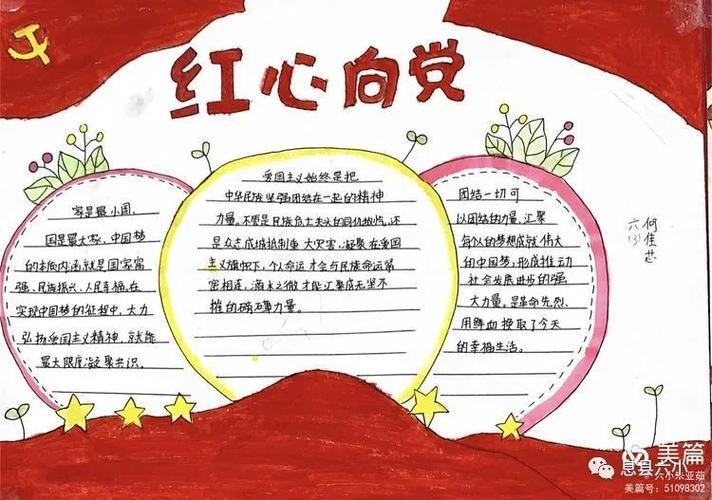 红心向党
家是最小国,
国是最大家,中国梦
的本质内涵就是国家富
强、民族振兴、人民幸福,在
实现中国梦的征程中,大力
弘扬爱国主义精神,就能
最大限度凝聚共识。
爱国主义始终是把
中华民族坚强团结在一起的精神
力量。不管是民族危亡关头的同仇敌忾,还
是众志成城抵制重大灾害,凝聚在爱国
主义旗帜下,个人命运才会与民族命运紧
密相连,滴水之微才能汇聚成无坚不
摧的磅礴力量。
团结一切可
以团结的力量,汇聚
每个的梦想成就伟大
的中国梦,形成推动
社会发展进步的强
大力量,是革命先烈
用鲜血换取了今天
的幸福生活。
六(3)
何佳芯
美篇
息县六小
六小朱亚茹
美篇号:51098302